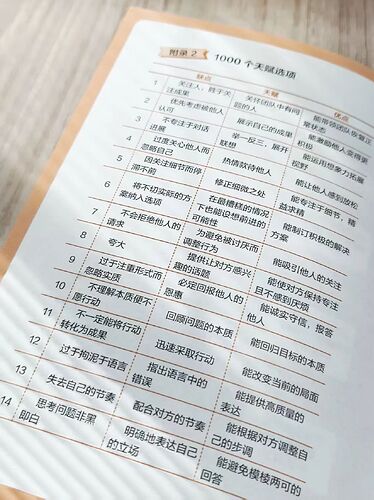 附录 2
1000 个天赋选项
缺点
天赋
优点
1
关注人，胜于关
注成果
关怀团队中有问
题的人
能带领团队恢复正
常状态
2
优先考虑被他人
认可
展示自己的成果
能激励他人变得更
积极
3
不专注于对话
进展
举一反三，展开
联想
能运用想象力拓展
视野
4
过度关心他人而
忽略自己
热情款待他人
能让他人感到放松
5
因关注细节而停
滞不前
修正细微之处
能专注于细节，精
益求精
6
将不切实际的方
案纳入选项
在最糟糕的情况
下也能设想前进的
可能性
能制订积极的解决
方案
7
不会拒绝他人的
请求
为避免被讨厌而
调整行为
能吸引他人的关注
8
夸大
提供让对方感兴
趣的话题
能使对方保持专注
且不感到厌烦
9
过于注重形式而
忽略实质
必定回报他人的
恩惠
能诚实守信，报答
他人
10
不理解本质便不
愿行动
回顾问题的本质
能回归目标的本质
11
不一定能将行动
转化为成果
迅速采取行动
能改变当前的局面
12
过于拘泥于语言
指出语言中的
错误
能提供高质量的
表达
13
失去自己的节奏
配合对方的节奏
能根据对方调整自
己的步调
14
思考问题非黑
即白
明确地表达自己
的立场
能避免模棱两可的
回答